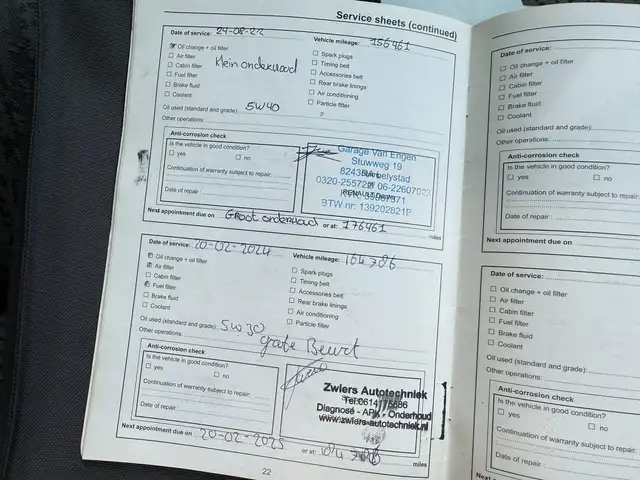 Service sheets (continued)
Date of service: 24-08-22 Vehicle mileage: 156461
Oil change + oil filter
Air filter
Cabin filter
Fuel filter
Brake fluid
Coolant
Klein onderhoud
Spark plugs
Timing belt
Accessories belt
Rear brake linings
Air conditioning
Particle filter
Oil used (standard and grade): 5W40
Other operations:
Anti-corrosion check
Is the vehicle in good condition?
yes no
Continuation of warranty subject to repair:
Date of repair:
Garage Van Engen
Stuwweg 19
Lelystad
BTW nr: 139202821B
Next appointment due on Groot onderhoud or at: 176461
miles
Date of service: 20-02-2024 Vehicle mileage: 164786
Oil change + oil filter
Air filter
Cabin filter
Fuel filter
Brake fluid
Coolant
Spark plugs
Timing belt
Accessories belt
Rear brake linings
Air conditioning
Particle filter
Oil used (standard and grade): 5W30
Other operations: grote Beurt
Anti-corrosion check
Is the vehicle in good condition?
yes no
Continuation of warranty subject to repair:
Date of repair:
Zwiers Autotechniek
Diagnose - APK - Onderhoud
www.zwiers-autotechniek.nl
Next appointment due on 20-02-2025 or at:
miles
22
Date of service:
Oil change + oil filter
Air filter
Cabin filter
Fuel filter
Brake fluid
Coolant
Oil used (standard and grade):
Other operations:
Anti-corrosion check
Is the vehicle in good condition?
yes no
Continuation of warranty subject to repair:
Date of repair:
Next appointment due on
Date of service:
Oil change + oil filter
Air filter
Cabin filter
Fuel filter
Brake fluid
Coolant
Oil used (standard and grade):
Other operations:
Anti-corrosion check
Is the vehicle in good condition?
yes no
Continuation of warranty subject to
Date of repair: